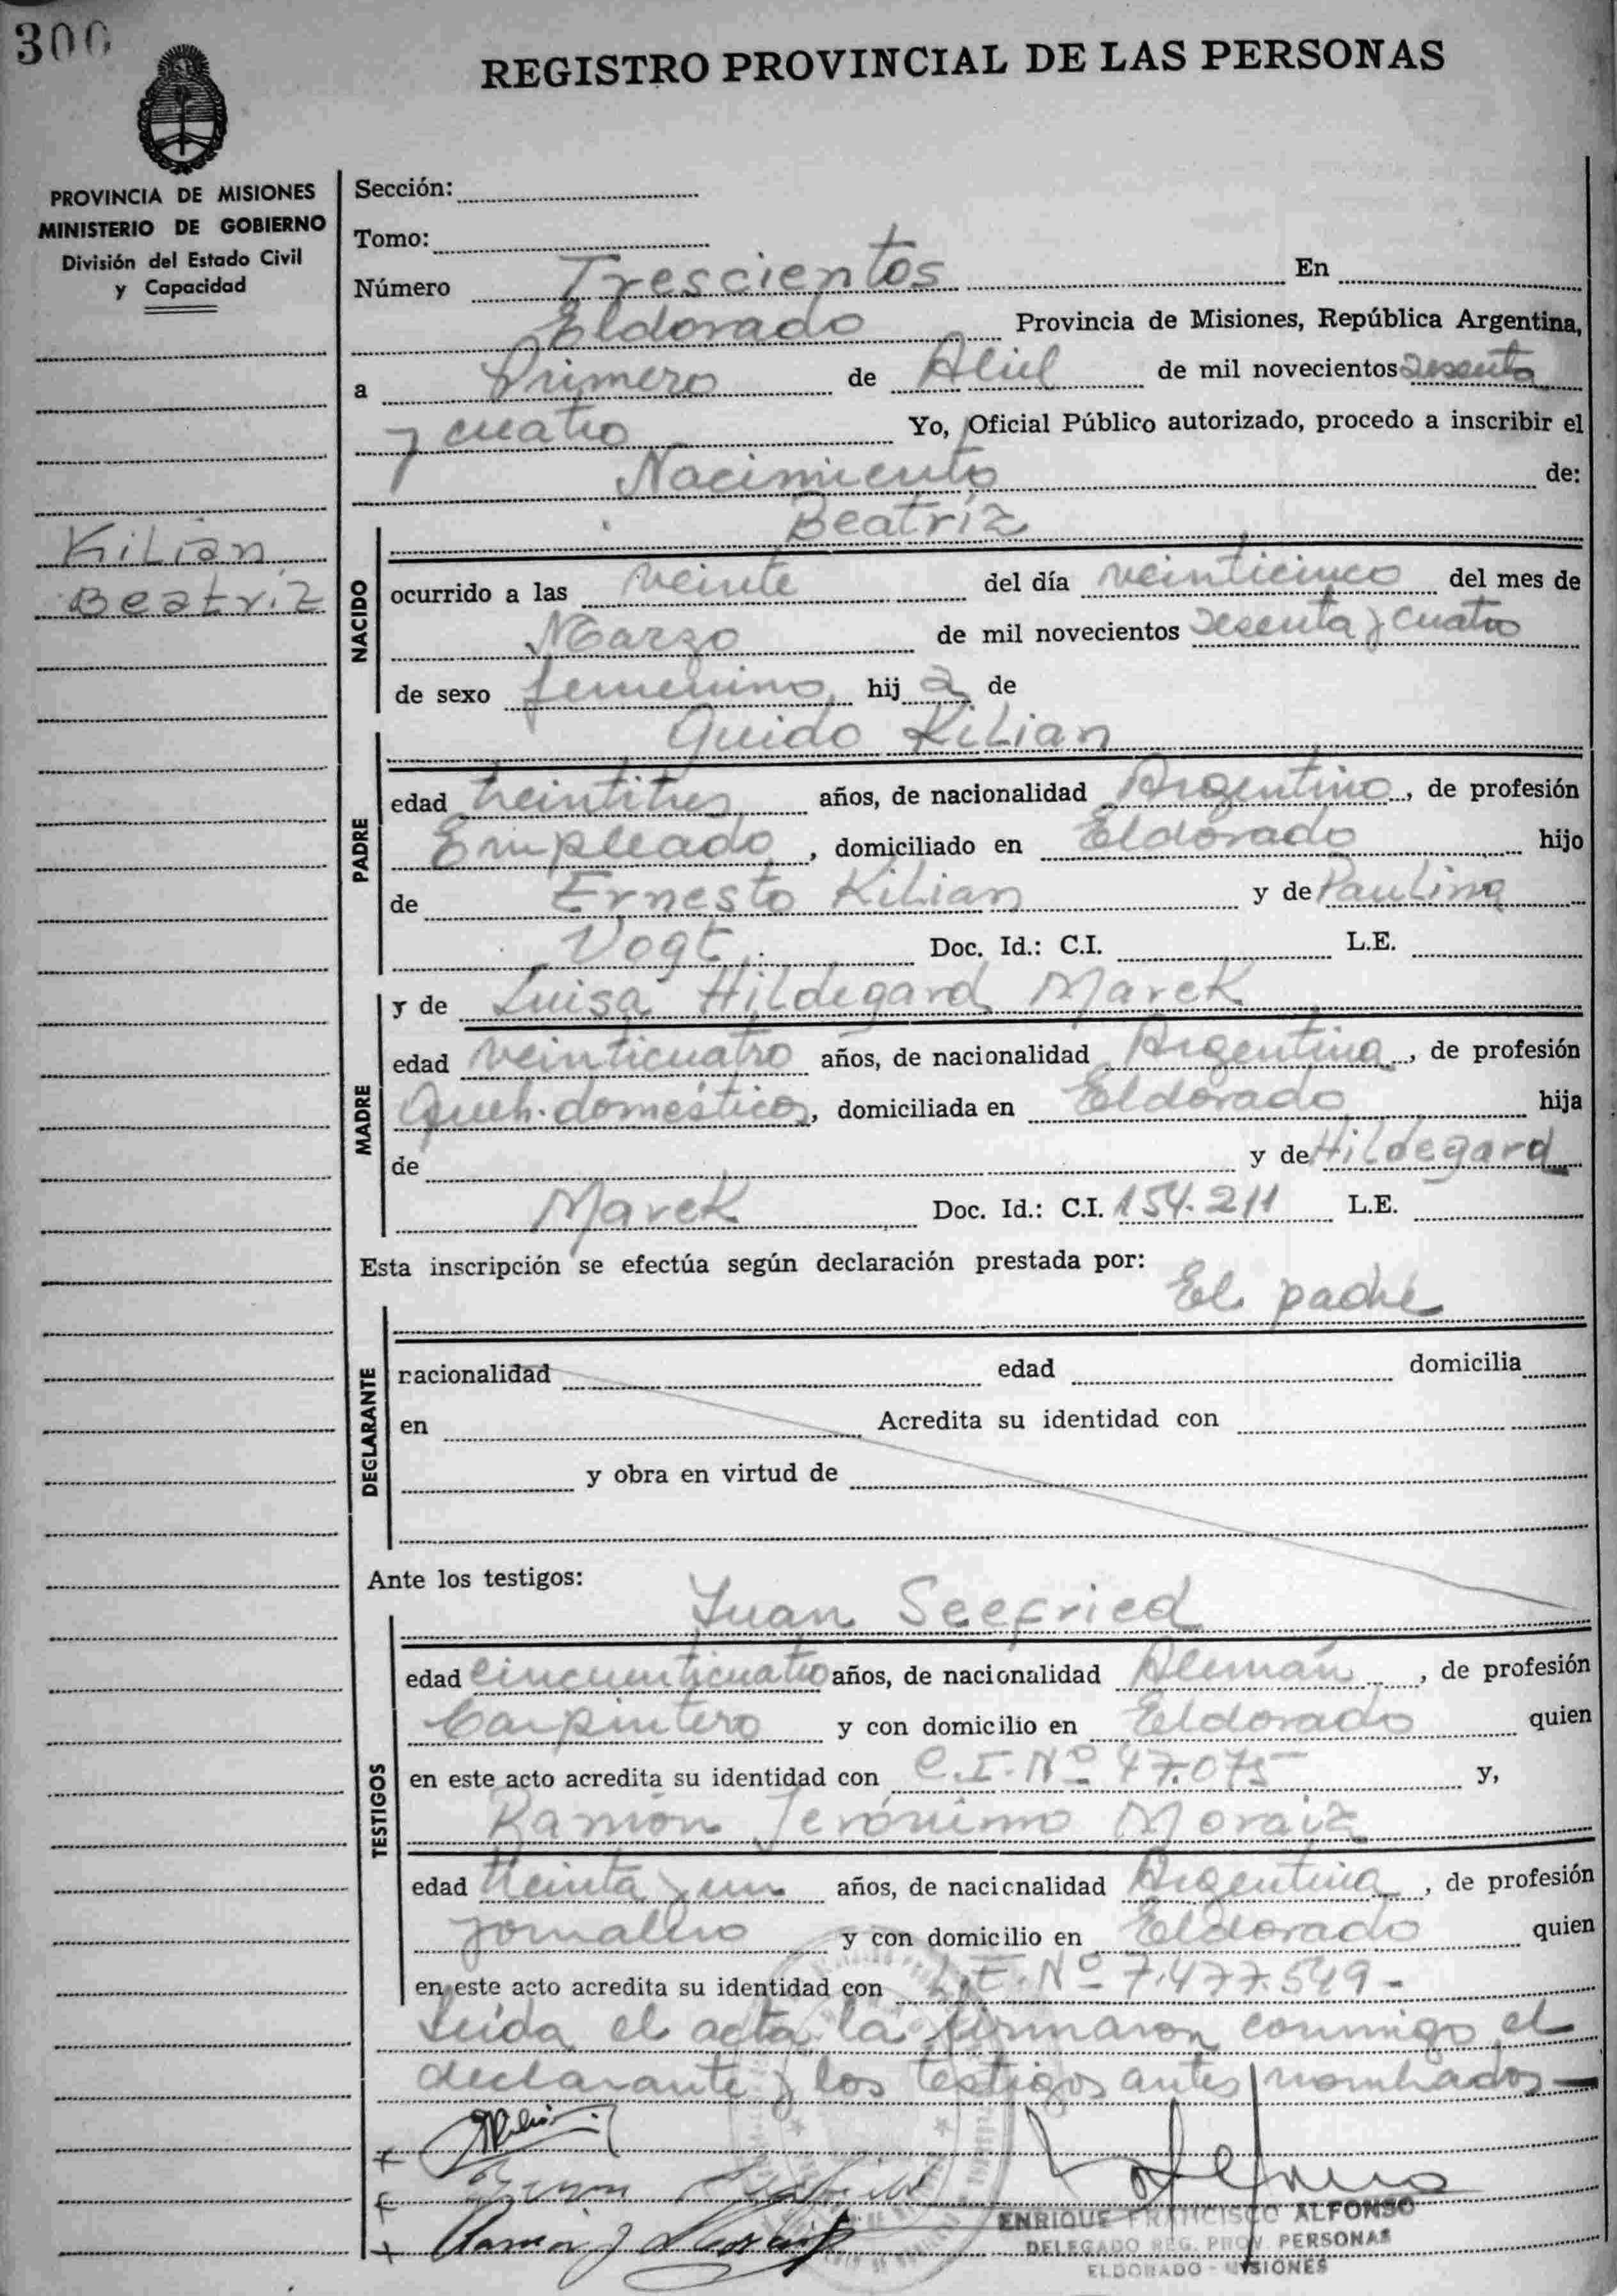 300
REGISTRO PROVINCIAL DE LAS PERSONAS
PROVINCIA DE MISIONES
MINISTERIO DE GOBIERNO
División del Estado Civil
y Capacidad
Kilian
Beatriz
Sección:
Tomo:
Número Trescientos En
Eldorado Provincia de Misiones, República Argentina,
a Primero de Abril de mil novecientos sesenta
y cuatro Yo, Oficial Público autorizado, procedo a inscribir el
Nacimiento de:
Beatríz
NACIDO
ocurrido a las veinte del día veinticinco del mes de
Marzo de mil novecientos sesenta y cuatro
de sexo femenino hija de
Guido Kilian
PADRE
edad treintitres años, de nacionalidad Argentino, de profesión
Empleado, domiciliado en Eldorado hijo
de Ernesto Kilian y de Paulina
Vogt. Doc. Id.: C.I. L.E.
MADRE
y de Luisa Hildegard Marek
edad veinticuatro años, de nacionalidad Argentina, de profesión
Queh. domésticos, domiciliada en Eldorado hija
de y de Hildegard
Marek Doc. Id.: C.I. 154.211 L.E.
Esta inscripción se efectúa según declaración prestada por:
El padre
DECLARANTE
nacionalidad edad domicilia
en Acredita su identidad con
y obra en virtud de
Ante los testigos:
Juan Seefried
TESTIGOS
edad cincuenticuatro años, de nacionalidad Alemán, de profesión
Carpintero y con domicilio en Eldorado quien
en este acto acredita su identidad con C.I. Nº 47.075 y,
Ramón Jerónimo Moraiz
edad treinta y un años, de nacionalidad Argentina, de profesión
jornalero y con domicilio en Eldorado quien
en este acto acredita su identidad con L.E. Nº 7.477.549-
Leída el acta la firmaron conmigo el
declarante y los testigos antes nombrados-
ENRIQUE FRANCISCO ALFONSO
DELEGADO REG. PROV. PERSONAS
ELDORADO - MISIONES